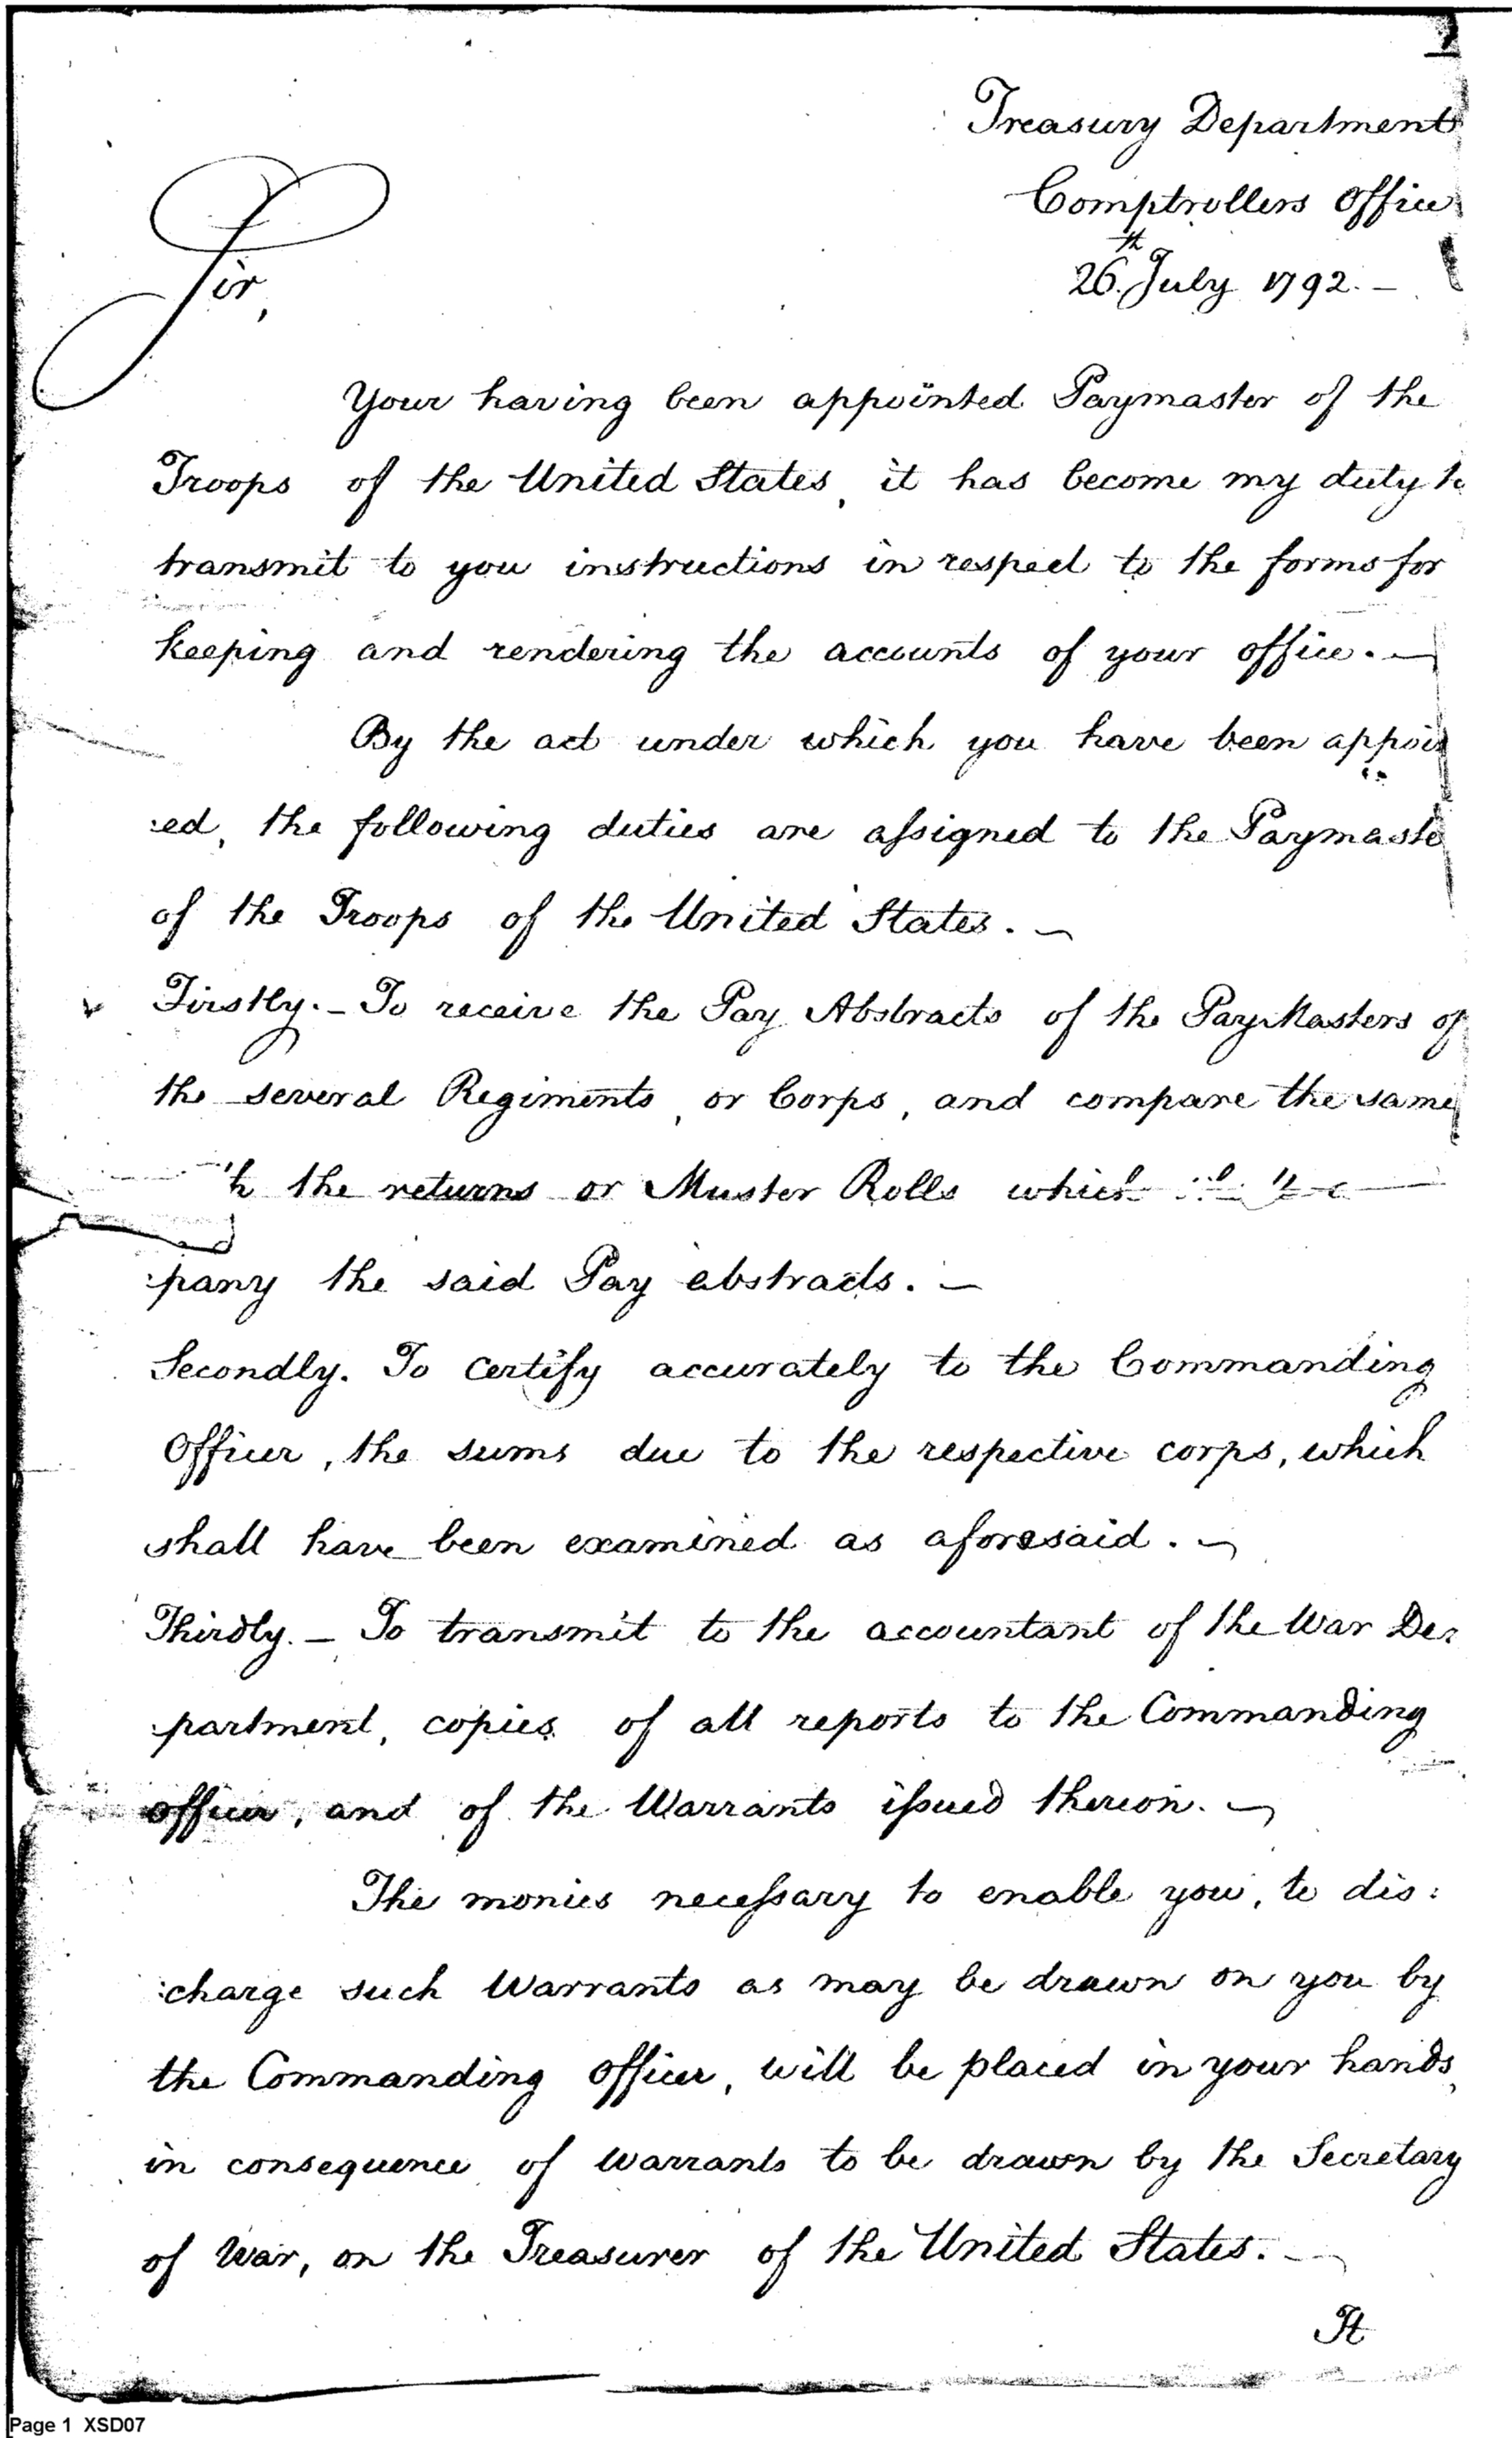 Treasury Department
Comptrollers Office
26.th July 1792. –
Sir,
Your having been appointed Paymaster of the
Troops of the United States, it has become my duty to
transmit to you instructions in respect to the forms for
keeping and rendering the accounts of your office. –
By the act under which you have been appoin
:ed, the following duties are assigned to the Paymaste
of the Troops of the United States. –
Firstly. – To receive the Pay Abstracts of the PayMasters of
the several Regiments, or Corps, and compare the same
the returns or Muster Rolls which
:pany the said Pay abstracts. –
Secondly. To certify accurately to the Commanding
Officer, the sums due to the respective corps, which
shall have been examined as aforesaid. –
Thirdly. – To transmit to the accountant of the War De:
:partment, copies of all reports to the Commanding
officer, and of the Warrants issued thereon. –
The monies necessary to enable you, to dis:
:charge such Warrants as may be drawn on you by
the Commanding officer, will be placed in your hands,
in consequence of Warrants to be drawn by the Secretary
of War, on the Treasurer of the United States. –
It
Page 1 XSD07